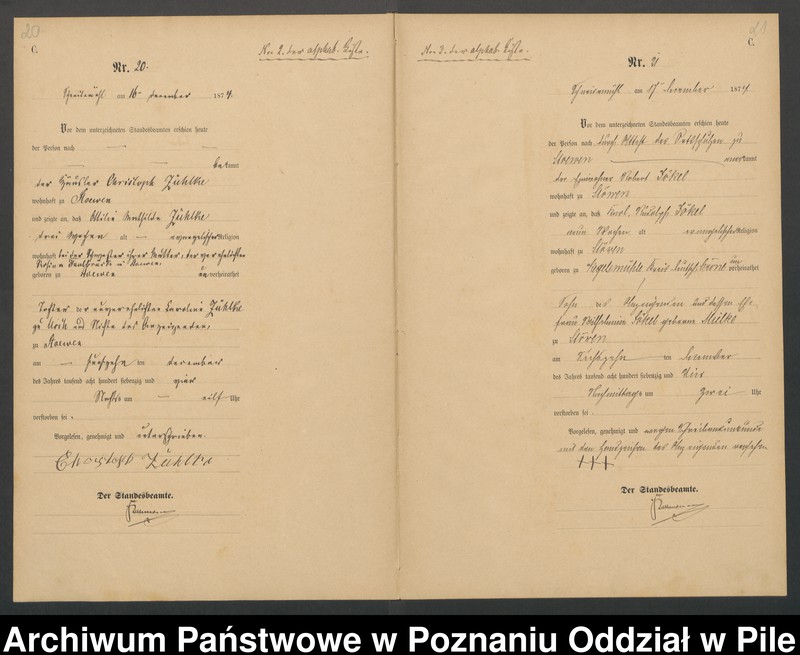 20
C.
Nr. 2. der alphab. Liste.
Nr. 20.
Schneidemühl am 16 December 1874.
Vor dem unterzeichneten Standesbeamten erschien heute
der Person nach
bekannt
der Häusler Christoph Zühlke
wohnhaft zu Stoewen
und zeigte an, daß Ottilie Mathilde Zühlke
drei Wochen alt — evangelischer Religion
wohnhaft bei der Schwester ihrer Mutter, der verehelichten
geboren zu Stoewen unverheirathet
Tochter der unverehelichten Caroline Zühlke
zu und Nichte des Anzeigenden,
zu Stoewen
am — fünfzehn ten December
des Jahres tausend acht hundert siebenzig und vier
Nachts um — eilf Uhr
verstorben sei.
Vorgelesen, genehmigt und unterschrieben.
Christoph Zühlke
Der Standesbeamte.
21
C.
Nr. 2. der alphab. Liste.
Nr. 21
Schneidemühl am 17 December 1874.
Vor dem unterzeichneten Standesbeamten erschien heute
der Person nach durch Attest des Dorfschulzen zu
Stoewen anerkannt
der Einwohner Robert Jökel
wohnhaft zu Stöwen
und zeigte an, daß Carl Rudolph Jökel
neun Wochen alt evangelischer Religion
wohnhaft zu Stöven
geboren zu Sagemühle Kreis Deutsch Crone unverheirathet
Sohn des Anzeigenden und dessen Ehe-
frau Wilhelmine Jökel geborene Mielke
zu Stöven
am Sechszehn ten December
des Jahres tausend acht hundert siebenzig und Vier
Nachmittags um zwei Uhr
verstorben sei.
Vorgelesen, genehmigt und wegen Schreibensunkunde
mit den Handzeichen des Anzeigenden versehen
+++
Der Standesbeamte.
Archiwum Państwowe w Poznaniu Oddział w Pile